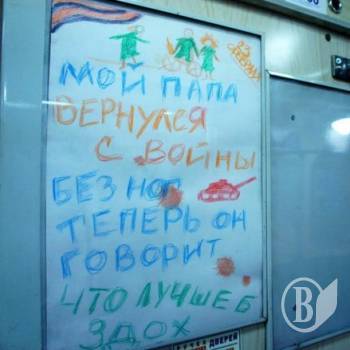 МОЙ ПАПА
ВЕРНУЛСЯ
С ВОЙНЫ
БЕЗ НОГ
ТЕПЕРЬ ОН
ГОВОРИТ
ЧТО ЛУЧШЕ Б
ЗДОХ
ДВЕРЕЙ
В